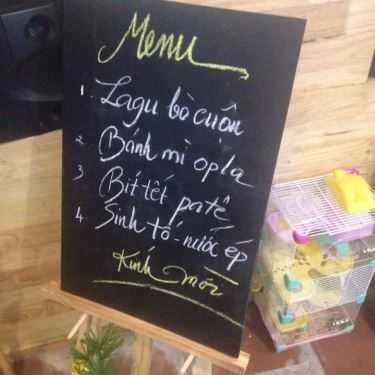 Menu
1. Lagu bò cuôn
2 Bánh mì opla
3 Bít tết patê
4. Sinh tố - nước ép
Kính mời